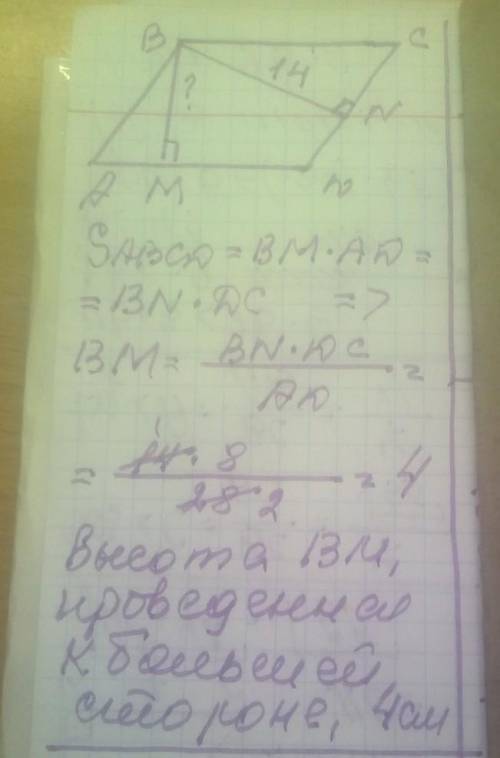 B C
14
?
N
A M D
SABCD = BM · AD =
= BN · DC =>
BM = BN · DC / AD =
= 14 · 8 / 28 2 = 4
Высота BM,
проведенная
к большей
стороне, 4см